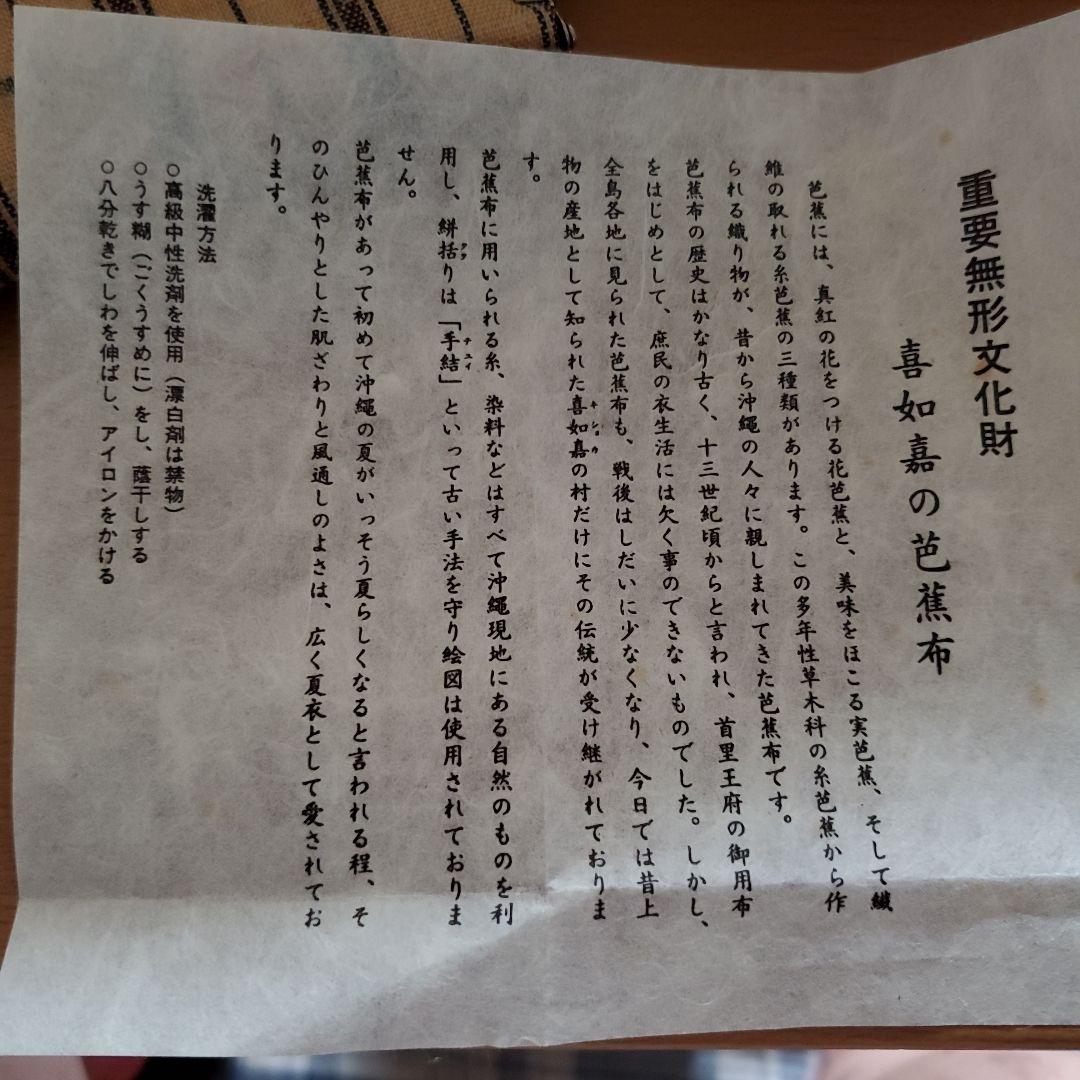 重要無形文化財
喜如嘉の芭蕉布
芭蕉には、真紅の花をつける花芭蕉と、美味をほこる実芭蕉、そして繊
維の取れる糸芭蕉の三種類があります。この多年性草木科の糸芭蕉から作
られる織り物が、昔から沖縄の人々に親しまれてきた芭蕉布です。
芭蕉布の歴史はかなり古く、十三世紀頃からと言われ、首里王府の御用布
をはじめとして、庶民の衣生活には欠く事のできないものでした。しかし、
全島各地に見られた芭蕉布も、戦後はしだいに少なくなり、今日では昔上
物の産地として知られた喜如嘉の村だけにその伝統が受け継がれておりま
す。
芭蕉布に用いられる糸、染料などはすべて沖縄現地にある自然のものを利
用し、絣括りは「手結」といって古い手法を守り絵図は使用されておりま
せん。
芭蕉布があって初めて沖縄の夏がいっそう夏らしくなると言われる程、そ
のひんやりとした肌ざわりと風通しのよさは、広く夏衣として愛されてお
ります。
洗濯方法
○高級中性洗剤を使用（漂白剤は禁物）
○うす糊（ごくうすめに）をし、蔭干しする
○八分乾きでしわを伸ばし、アイロンをかける